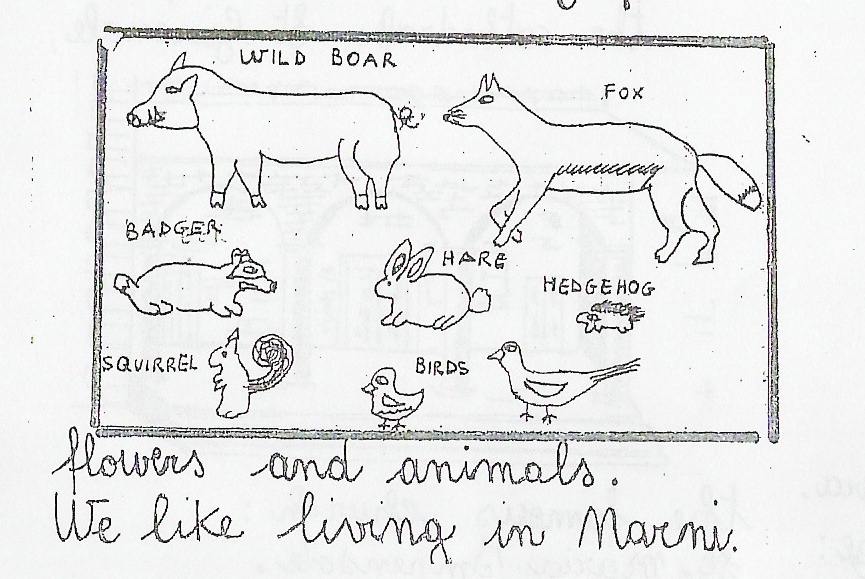 WILD BOAR
FOX
BADGER
HARE
HEDGEHOG
SQUIRREL
BIRDS
flowers and animals.
We like living in Narni.